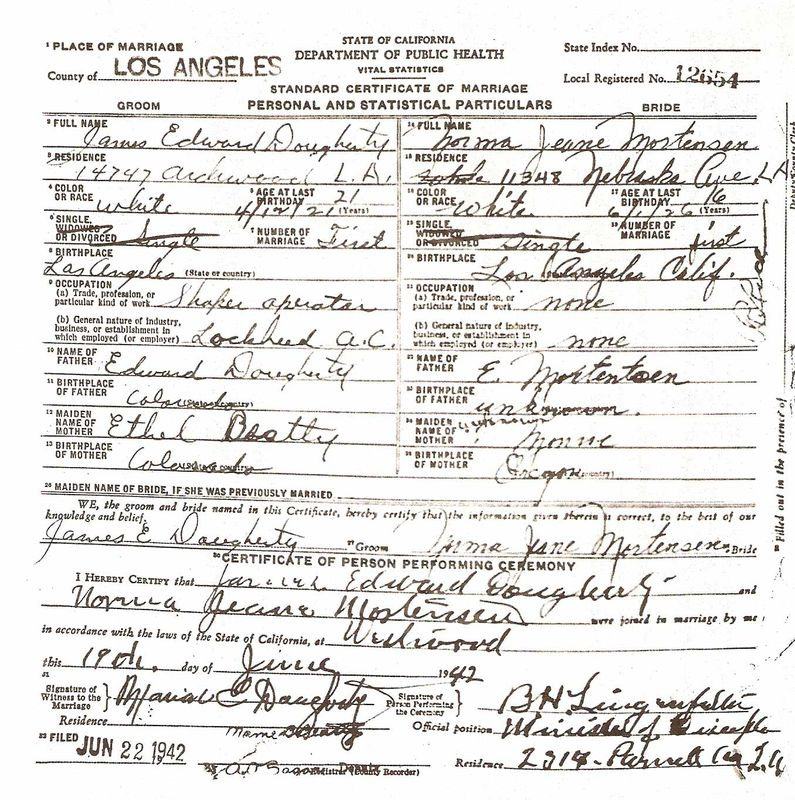 STATE OF CALIFORNIA
DEPARTMENT OF PUBLIC HEALTH
VITAL STATISTICS
STANDARD CERTIFICATE OF MARRIAGE
PERSONAL AND STATISTICAL PARTICULARS
1 PLACE OF MARRIAGE
County of LOS ANGELES
State Index No.
Local Registered No. 12654
GROOM
2 FULL NAME James Edward Dougherty
3 RESIDENCE 14747 Archwood L.A.
4 COLOR OR RACE White 5 AGE AT LAST BIRTHDAY 21 (Years) 4/12/21
6 SINGLE, WIDOWED OR DIVORCED Single 7 NUMBER OF MARRIAGE First
8 BIRTHPLACE Los Angeles (State or country)
9 OCCUPATION
(a) Trade, profession, or particular kind of work Shaper operator
(b) General nature of industry, business, or establishment in which employed (or employer) Lockheed A.C.
10 NAME OF FATHER Edward Dougherty
11 BIRTHPLACE OF FATHER Colorado
12 MAIDEN NAME OF MOTHER Ethel Beatty
13 BIRTHPLACE OF MOTHER Colorado
BRIDE
14 FULL NAME Norma Jeane Mortensen
15 RESIDENCE 11348 Nebraska Ave. LA
16 COLOR OR RACE White 17 AGE AT LAST BIRTHDAY 16 (Years) 6/1/26
18 SINGLE, WIDOWED OR DIVORCED Single 19 NUMBER OF MARRIAGE first
20 BIRTHPLACE Los Angeles Calif.
21 OCCUPATION
(a) Trade, profession, or particular kind of work none
(b) General nature of industry, business, or establishment in which employed (or employer) none
22 NAME OF FATHER E. Mortensen
23 BIRTHPLACE OF FATHER unknown.
24 MAIDEN NAME OF MOTHER Monroe
25 BIRTHPLACE OF MOTHER Oregon
26 MAIDEN NAME OF BRIDE, IF SHE WAS PREVIOUSLY MARRIED
WE, the groom and bride named in this Certificate, hereby certify that the information given therein is correct, to the best of our
knowledge and belief.
James E. Dougherty 27 Groom Norma Jeane Mortensen Bride
30 CERTIFICATE OF PERSON PERFORMING CEREMONY
I HEREBY CERTIFY that James Edward Dougherty and
Norma Jeane Mortensen were joined in marriage by me
in accordance with the laws of the State of California, at Westwood
this 19th. day of June 1942
31 Signature of Witness to the Marriage Marion E Dougherty
Signature of Person Performing the Ceremony B H Lingenfelter
Residence
Official position Minister of
32 FILED JUN 22 1942
Registrar (County Recorder)
Residence 2314 - L.A
Filled out in the presence of